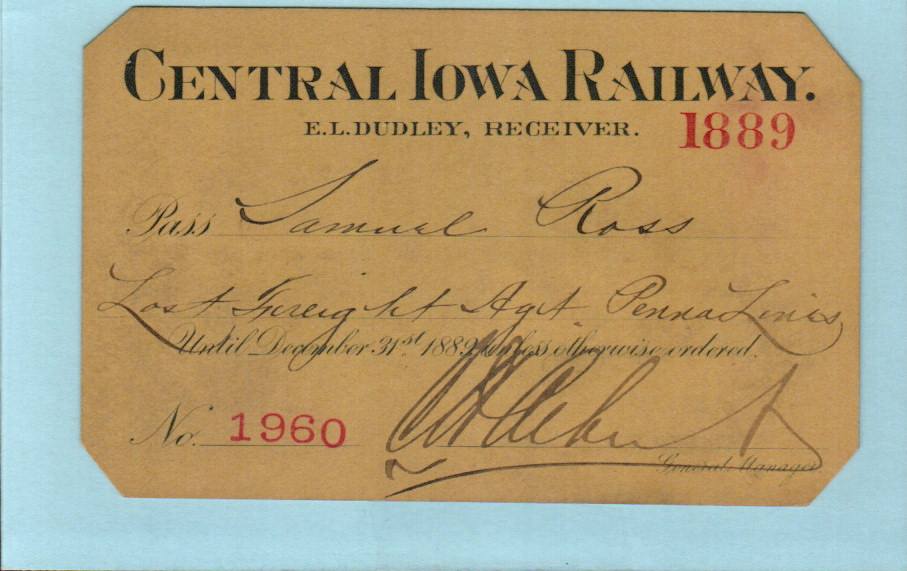 CENTRAL IOWA RAILWAY.
E.L.DUDLEY, RECEIVER.
1889
Pass Samuel Ross
Lost Freight Agt Penna Lines
Until December 31st 1889 unless otherwise ordered.
No. 1960
General Manager